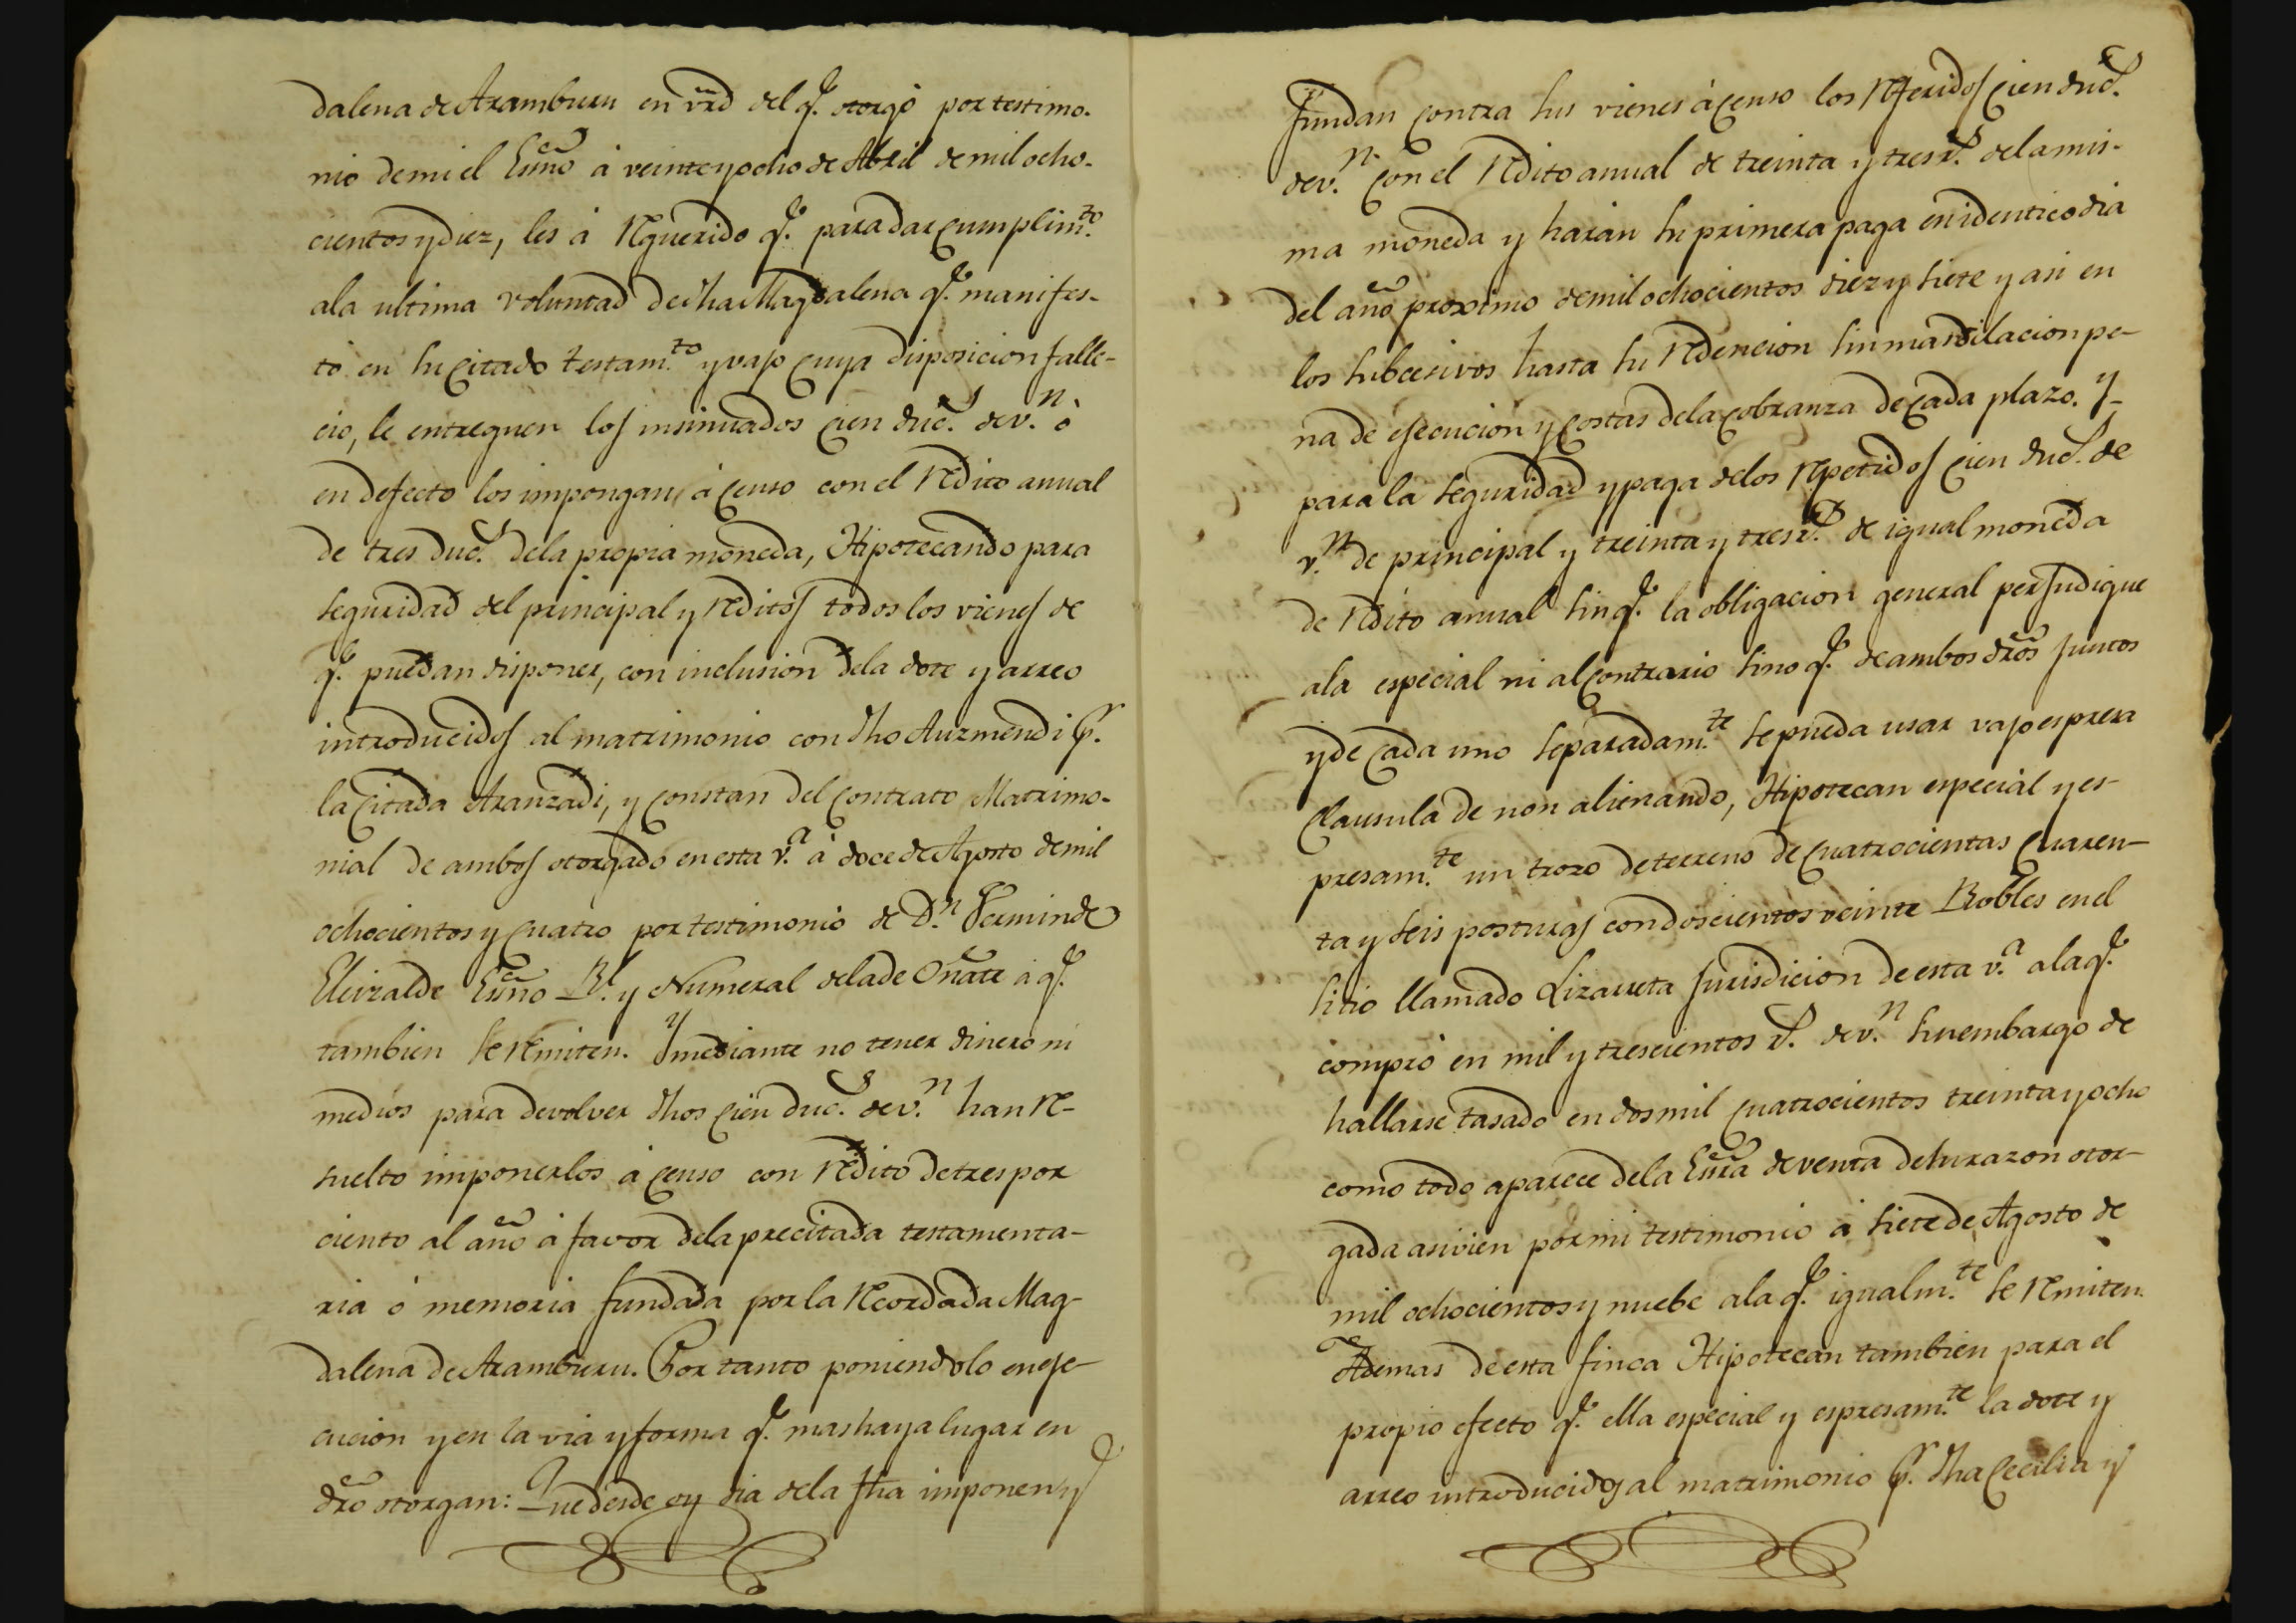 dalena de Aramburu en vrd del q.e otorgò por testimo-
nio de mi el Ssno à veinte y ocho de Abril de mil ocho-
cientos y diez, les à requerido q.e para dar cumplim.to
ala ultima voluntad de dha Magdalena q.e manifes-
tò en su citado testam.to y vajo cuya disposicion falle-
cio, le entreguen los insinuados cien duc.s de v.n ò
en defecto los impongan à censo con el redito anual
de tres duc.s dela propia moneda, Hipotecando para
seguridad del principal y reditos todos los vienes de
q.e puedan disponer, con inclusion dela dote y arreo
introducidos al matrimonio con dho Auzmendi p.r
la citada Aranzadi, y constan del contrato Matrimo-
nial de ambos otorgado en esta v.a à doce de Agosto de mil
ochocientos y cuatro por testimonio de D.n Fermin de
Eleizalde Ssno R.l y Numeral dela de Oñate à q.e
tambien se remiten. Y mediante no tener dinero ni
medios para devolver dhos cien duc.s de v.n han re-
suelto imponerlos à censo con redito de tres por
ciento al año à favor dela precitada testamenta-
ria ò memoria fundada por la recordada Mag-
dalena de Aramburu. Por tanto poniendolo en eje-
cucion y en la via y forma q.e mas haya lugar en
dro otorgan: Que desde oy dia dela fha imponen y
fundan contra sus vienes à censo los referidos cien duc.s
de v.n con el redito anual de treinta y tres r.s dela mis-
ma moneda y haràn su primera paga en identico dia
del año proximo de mil ochocientos diez y siete y asi en
los subcesivos hasta su redencion sin mas dilacion pe-
na de ejecucion y costas dela cobranza de cada plazo. Y
para la seguridad y paga delos repetidos cien duc.s de
v.n de principal y treinta y tres r.s de igual moneda
de redito anual sin q.e la obligacion general perjudique
ala especial ni al contrario sino q.e de ambos dros juntos
y de cada uno separadam.te se pueda usar vajo espresa
clausula de non alienando, Hipotecan especial y es-
presam.te un trozo de terreno de cuatrocientas cuaren-
ta y seis posturas con doscientos veinte Robles en el
sitio llamado Lizarreta jurisdicion de esta v.a ala q.e
comprò en mil y trescientos r.s de v.n sin embargo de
hallarse tasado en dos mil cuatrocientos treinta y ocho
como todo aparece dela Ssra de venta de su razon otor-
gada asi vien por mi testimonio à siete de Agosto de
mil ochocientos y nuebe ala q.e igualm.te se remiten.
Ademas de esta finca Hipotecan tambien para el
propio efecto q.e ella especial y espresam.te la dote y
arreo introducidos al matrimonio p.r dha Cecilia y